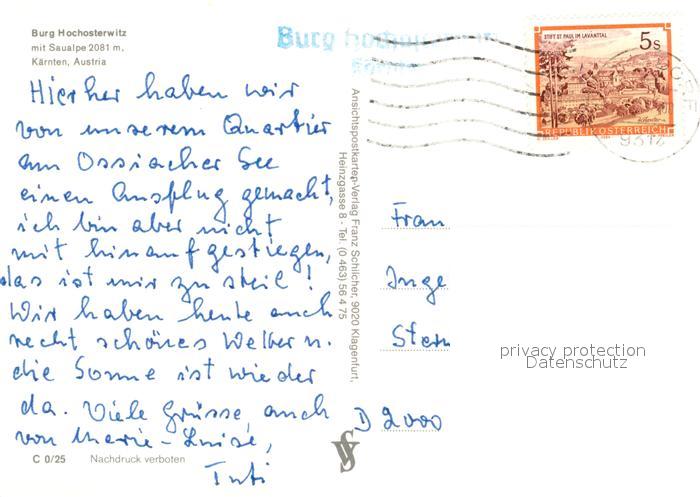 Burg Hochosterwitz
mit Saualpe 2081 m,
Kärnten, Austria
Burg Hochosterwitz
Hierher haben wir
von unserem Quartier
am Ossiacher See
einen Ausflug gemacht,
ich bin aber nicht
mit hinaufgestiegen,
das ist mir zu steil!
Wir haben heute auch
recht schönes Wetter u.
die Sonne ist wieder
da. Viele Grüsse, auch
von Marie-Luise,
Tuti
C 0/25 Nachdruck verboten
Ansichtspostkarten-Verlag Franz Schilcher, 9020 Klagenfurt,
Heinzgasse 8 · Tel. (0 463) 56 4 75
STIFT ST. PAUL IM LAVANTTAL
5s
REPUBLIK ÖSTERREICH
Frau
Inge
Stern
D 2000
privacy protection
Datenschutz